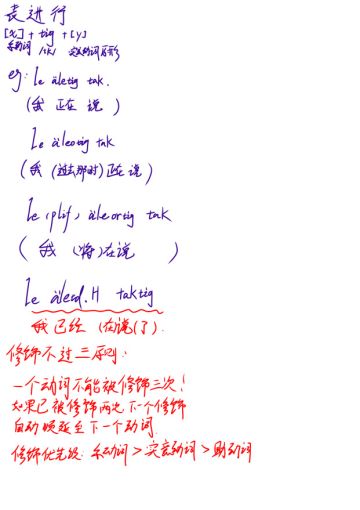 表进行
[x] + tig + [y]
系动词 /tik/ 实义动词原形
eg: le äletig tak.
(我 正在 说 )
le äleotig tak.
(我 (过去那时)正在 说)
le äleortig tak
( 我 (将)在说 )
le älesd.H taktig
我已经 (在)说(了).
修饰不过三原则:
一个动词不能被修饰三次!
如果已被修饰两次,下一个修饰
自动顺延至下一个动词.
修饰优先级: 系动词 > 实意动词 > 助动词